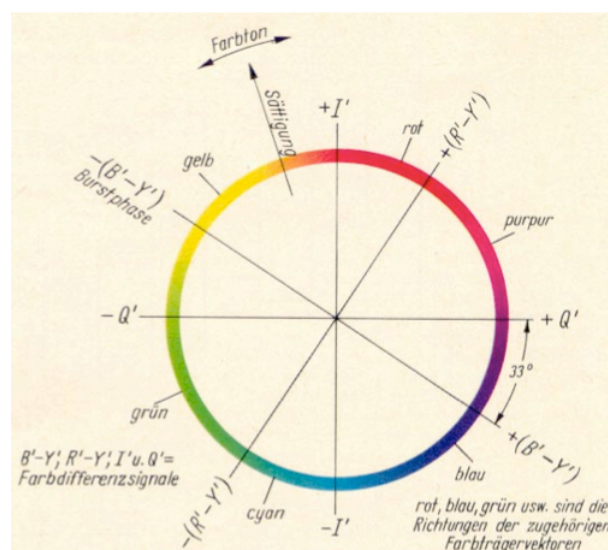 Farbton
Sättigung
+I'
rot
+(R'-Y')
gelb
-(B'-Y')
Burstphase
purpur
-Q'
+Q'
33°
grün
+(B'-Y')
B'-Y', R'-Y', I' u. Q'=
Farbdifferenzsignale
blau
-(R'-Y')
cyan
-I'
rot, blau, grün usw. sind die
Richtungen der zugehörigen
Farbträgervektoren